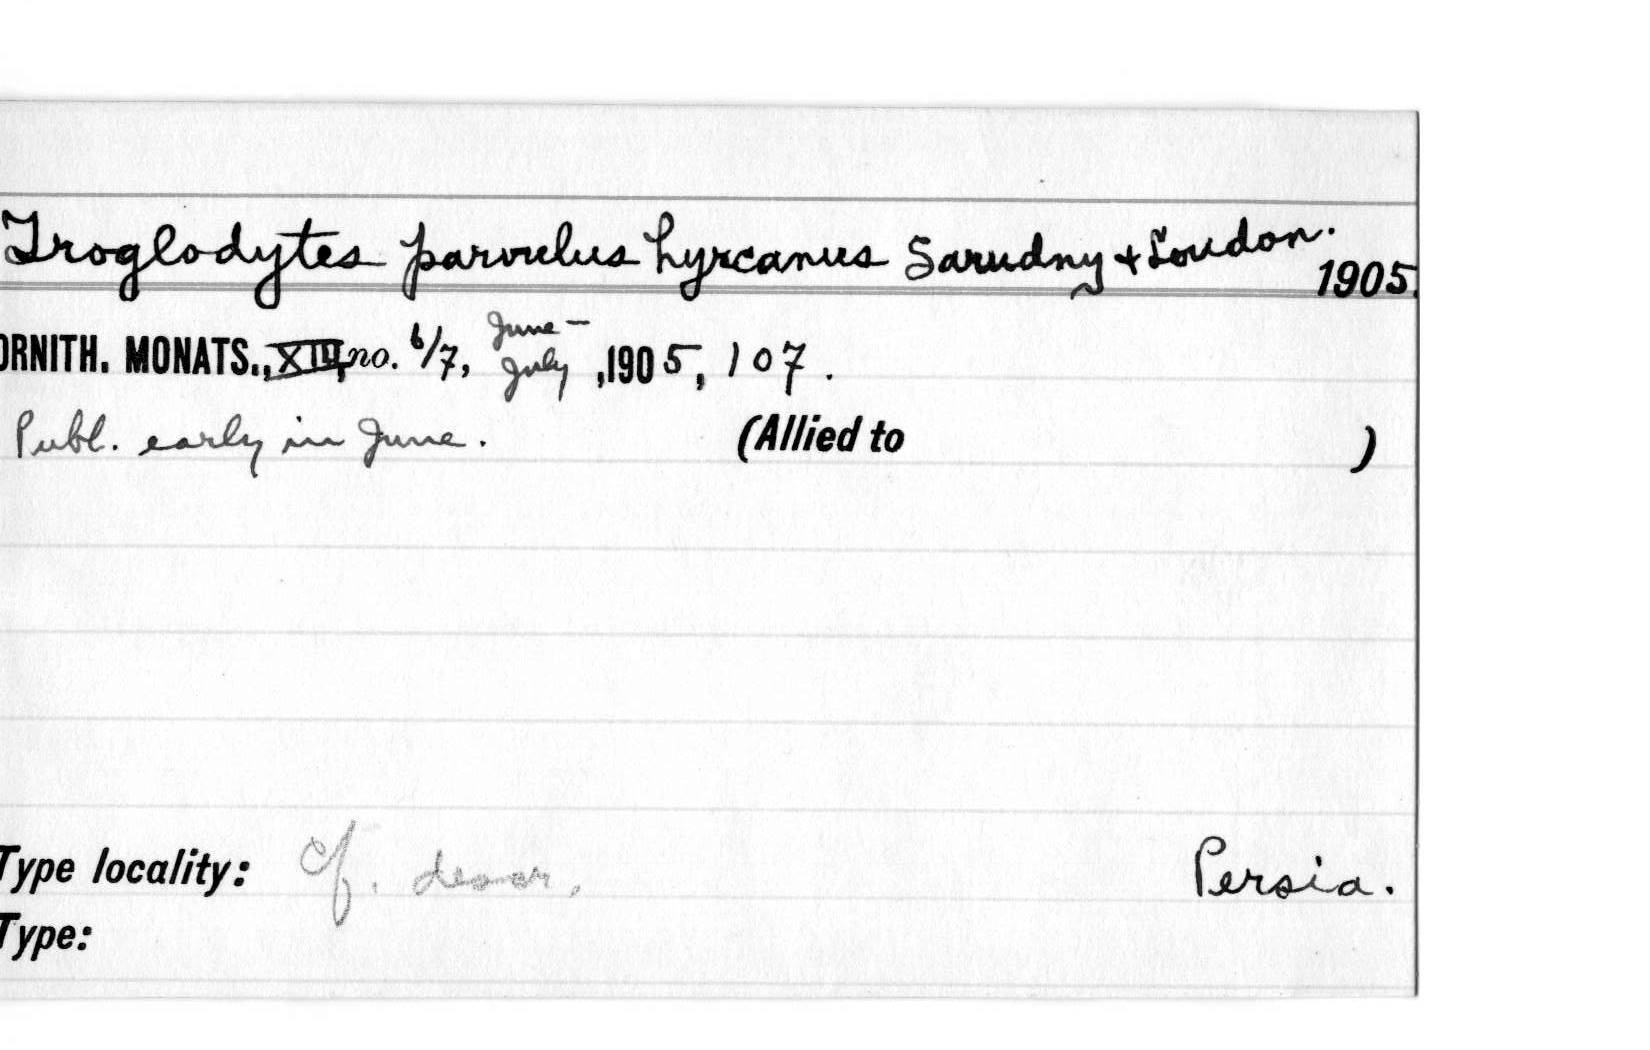 Troglodytes parvulus hyrcanus Sarudny + Loudon.
1905.
ORNITH. MONATS., XIII, no. 6/7, June – July, 1905, 107.
Publ. early in June. (Allied to )
Type locality: cf. descr. Persia.
Type: